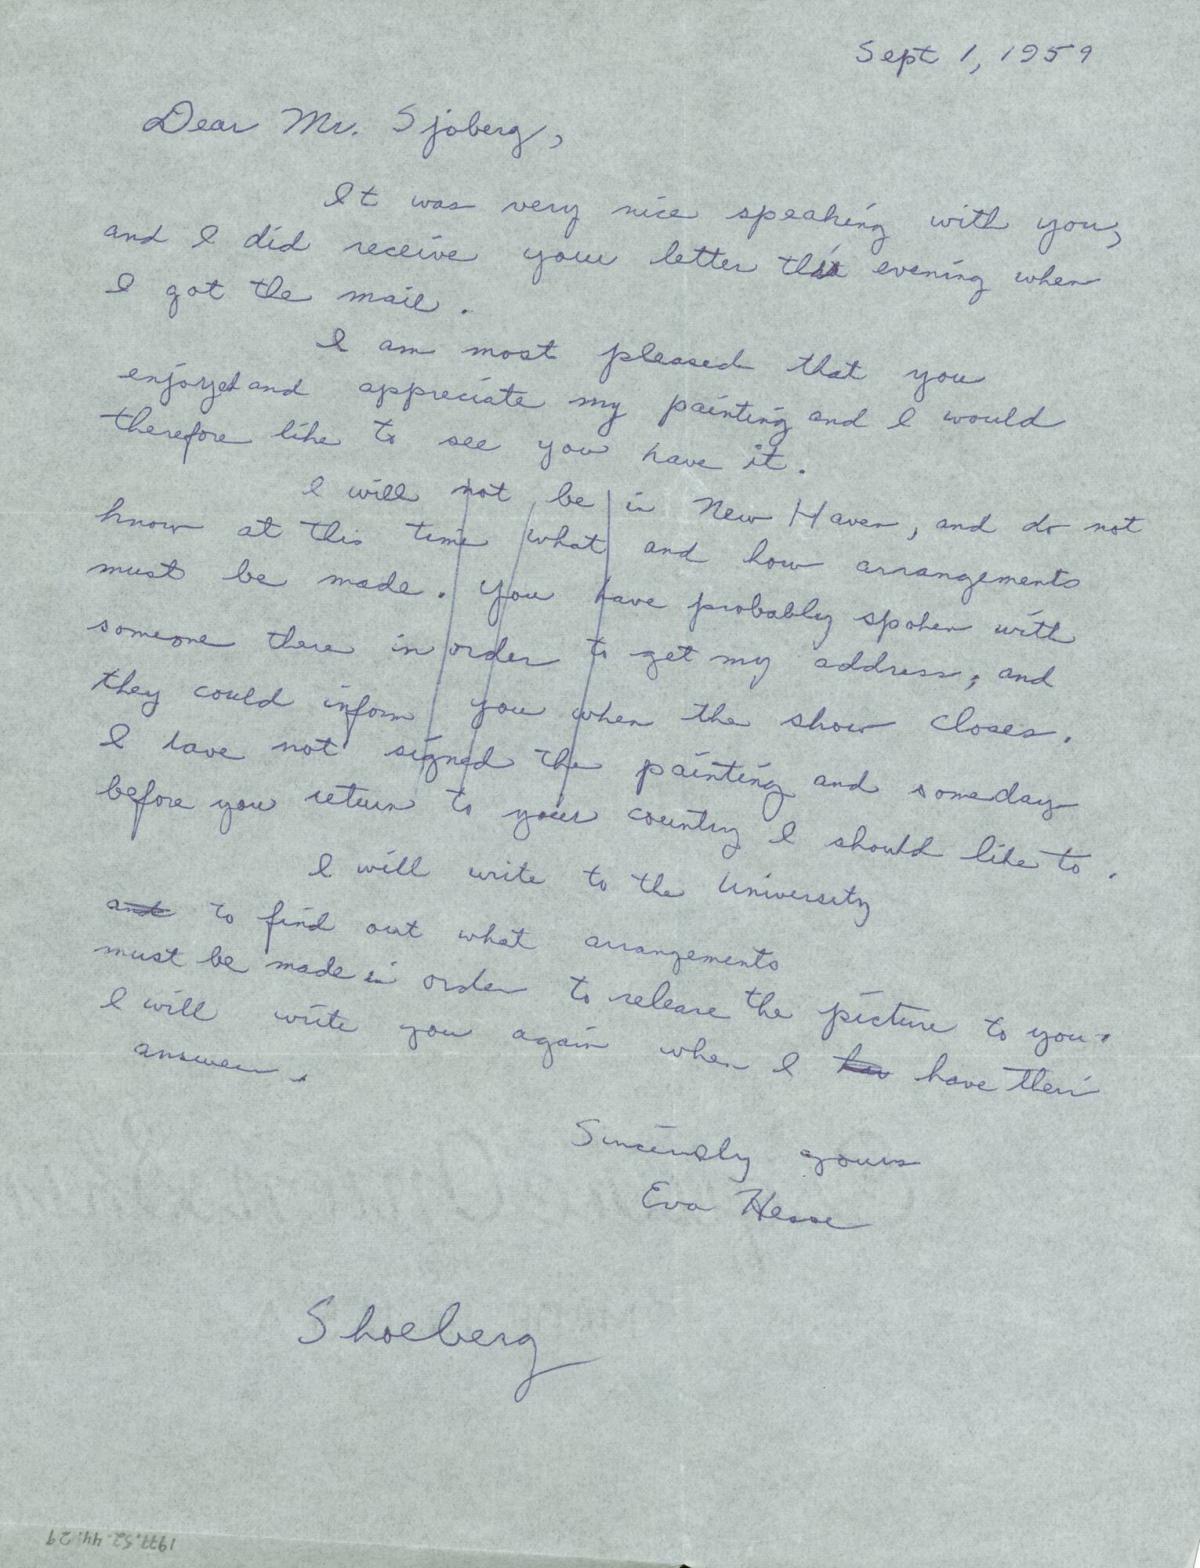 Sept 1, 1959
Dear Mr. Sjoberg,
It was very nice speaking with you,
and I did receive your letter this evening when
I got the mail.
I am most pleased that you
enjoyed and appreciate my painting and I would
therefore like to see you have it.
I will not be in New Haven, and do not
know at this time what and how arrangements
must be made. You have probably spoken with
someone there in order to get my address, and
they could inform you when the show closes.
I have not signed the painting and someday
before you return to your country I should like to.
I will write to the University
and to find out what arrangements
must be made in order to release the picture to you.
I will write you again when I hav have their
answer.
Sincerely yours
Eva Hesse
Shoeberg
1977.52.44.29